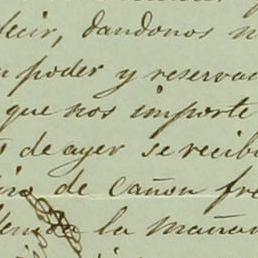 decir, dandonos
poder y reserva
que nos importe
de ayer se recib
de cañon fre
la mañan